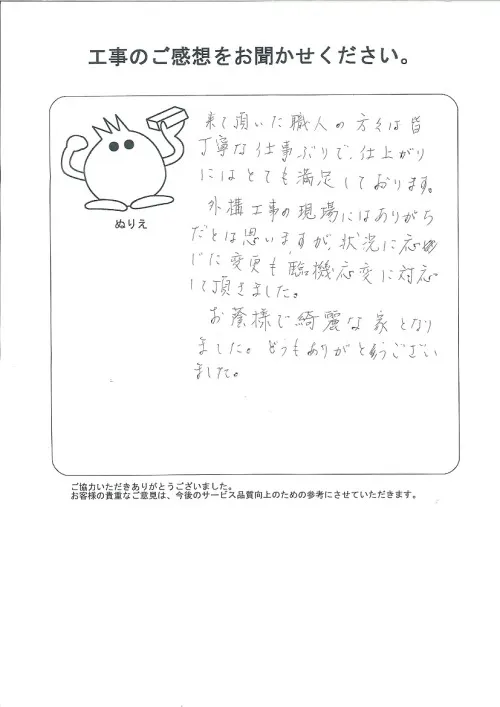 工事のご感想をお聞かせください。
来て頂いた職人の方々は皆
丁寧な仕事ぶりで、仕上がり
にはとても満足しております。
外構工事の現場にはありがち
だとは思いますが、状況に応
じた変更も臨機応変に対応
して頂きました。
お蔭様で綺麗な家となり
ました。どうもありがとうござい
ました。
ぬりえ
ご協力いただきありがとうございました。
お客様の貴重なご意見は、今後のサービス品質向上のための参考にさせていただきます。